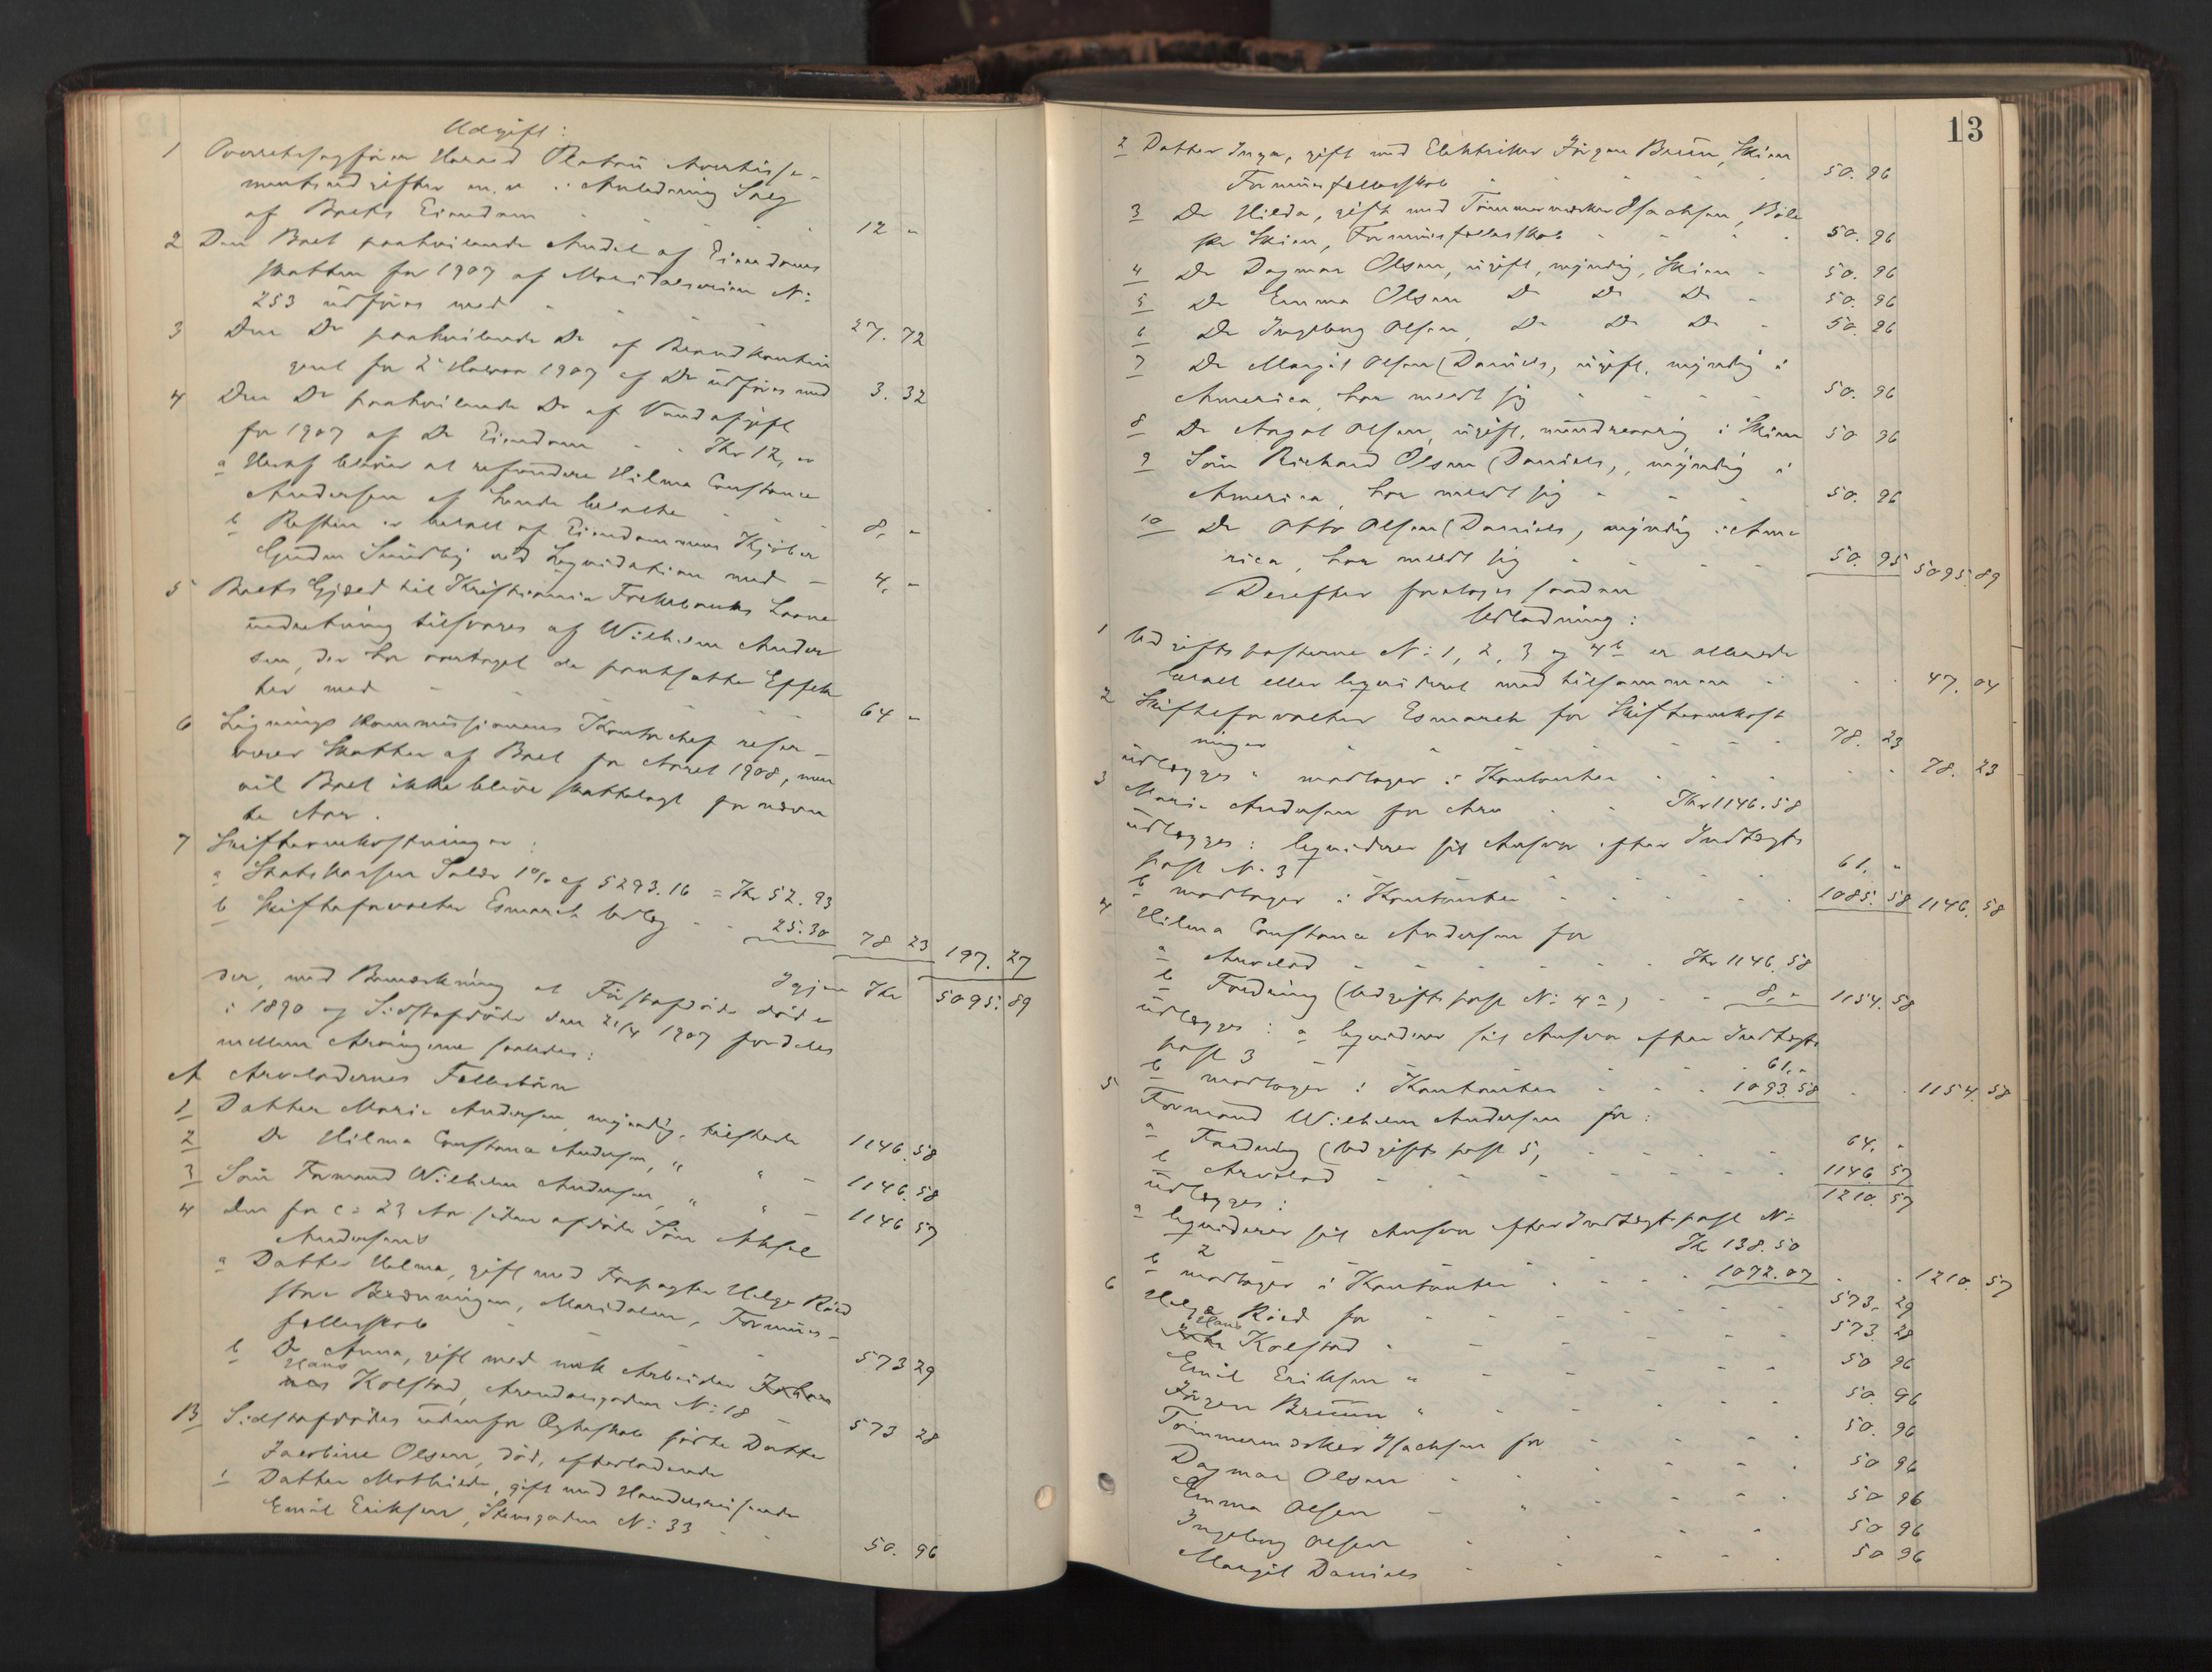 Udgift:
1 Overretssagfører Harald Platou Avertisse-
mentsudgifter m. v. i Anledning Salg
af Boets Eiendom - - - 12 "
2 Den Boet paahvilende Andel af Eiendoms
skatten for 1907 af Maridalsveien No
253 udføres med - - - 27. 72
3 Den Do paahvilende Do af Brandkontin
gent for 2' Halvaar 1907 af Do udføres med 3. 32
4 Den Do paahvilende Do af Vandafgift
for 1907 af Do Eiendom - - Kr 12, "
a Heraf bliver at refundere Hilma Constance
Andersen af hende betalte - - - 8, "
b Resten er betalt af Eiendommens Kjøber
Gudm Sundby ved Liqvidation med - 4, "
5 Boets Gjæld til Kristiania Folkebanks Laane
indretning tilsvares af Wilhelm Ander
sen, der har overtaget de pantsatte Effek
ter med - - - 64 "
6 Ligningskommissionens Kontorchef reser-
verer Skatter af Boet for Aaret 1908, men
vil Boet ikke blive skattelagt for nævn
te Aar.
7 Skifteomkostninger:
a Statskassen Saldo 1% af 5293.16 = Kr 52.93
b Skifteforvalter Esmarch Udlæg - - 25.30 78 23 197. 27
Igjen Kr 5095. 89
der, med Bemærkning at Førstafdøde døde
i 1890 og Sidstafdøde den 21/4 1907 fordeles
mellem Arvingerne saaledes:
A Arveladernes Fællesbørn
1 Datter Marie Andersen, myndig, tilstede 1146. 58
2 Do Hilma Constance Andersen, " " - 1146. 58
3 Søn Formand Wilhelm Andersen, " " - 1146 57
4 den for ca 23 Aar siden afdøde Søn Aksel
Andersens
a Datter Helma, gift med Forpagter Helge Röed
store Brænningen, Maridalen, Formues-
fællesskab - - - 573 29
b Do Anna, gift med Arbeider Johan
Hans
nes Kolstad, Arendalsgaden No 18 - 573 28
B Sidstafdødes udenfor Ægteskab fødte Datter
Jacobine Olsen, død, efterladende
1 Datter Mathilde, gift med Handelsreisende
Emil Eriksen, Stensgaden No 33 - - 50. 96
13
2 Datter Inga, gift med Elektriker Jørgen Bruun, Skien
Formuesfællesskab - - - 50. 96
3 Do Hilda, gift med Tømmermærker Isachsen, Böle
pr Skien, Formuesfællesskab - - - 50. 96
4 Do Dagmar Olsen, ugift, myndig, Skien - 50. 96
5 Do Emma Olsen Do Do Do - 50. 96
6 Do Ingeborg Olsen, Do Do Do - 50. 96
7 Do Margit Olsen (Daniels, ugift, myndig i
America, har meldt sig - - - 50. 96
8 Do Aagot Olsen, ugift, mindreaarig i Skien 50 96
9 Søn Richard Olsen (Daniels,, myndig i
America, har meldt sig - - - 50. 96
10 Do Otto Olsen (Daniels, myndig i Ame
rica, har meldt sig - - - 50. 95 5095. 89
Derefter foretages saadan
Udlodning:
1 Udgiftsposterne No 1, 2, 3 og 4b er allerede
betalt eller liqvideret med tilsammen - - - 47. 04
2 Skifteforvalter Esmarch for Skifteomkost
ninger - - - 78. 23
udlægges: modtager i Kontanter - - - 78. 23
3 Marie Andersen for Arv - - Kr 1146.58
udlægges: liqviderer sit Ansvar efter Indtægts
post No 3 - - - 61, "
b modtager i Kontanter - - - 1085. 58 1146. 58
4 Hilma Constance Andersen for
a Arvelod - - - Kr 1146.58
b Fordring (Udgiftspost No 4a) - - 8, " 1154. 58
udlægges: a liqviderer sit Ansvar efter Indtægts
post 3 - - - 61, "
b modtager i Kontanter - - - 1093.58 - - 1154. 58
5 Formand Wilhelm Andersen for:
a Fordring (Udgiftspost 5, - - - 64, "
b Arvelod - - - 1146. 57
1210. 57
udlægges:
a liqviderer sit Ansvar efter Indtægtspost No
2 Kr 138.50
b modtager i Kontanter - - - 1072.07 - - 1210. 57
6 Helge Röed for - - - 573. 29
Hans
Joh Kolstad " - - - 573. 28
Emil Eriksen " - - - 50 96
Jörgen Bruun " - - - 50. 96
Tømmermærker Isachsen for - - - 50. 96
Dagmar Olsen - - - 50 96
Emma Olsen - " - - - 50 96
Ingeborg Olsen - - - 50 96
Margit Daniels - - - 50 96